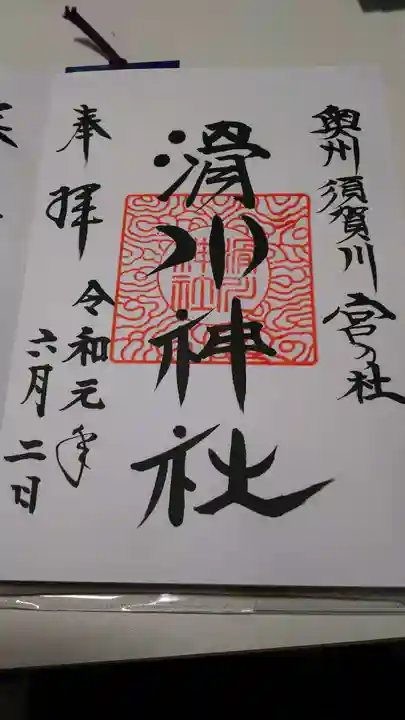 奥州須賀川 宮ノ社
滑川神社
奉拝
令和元年
六月二日
滑川
神社